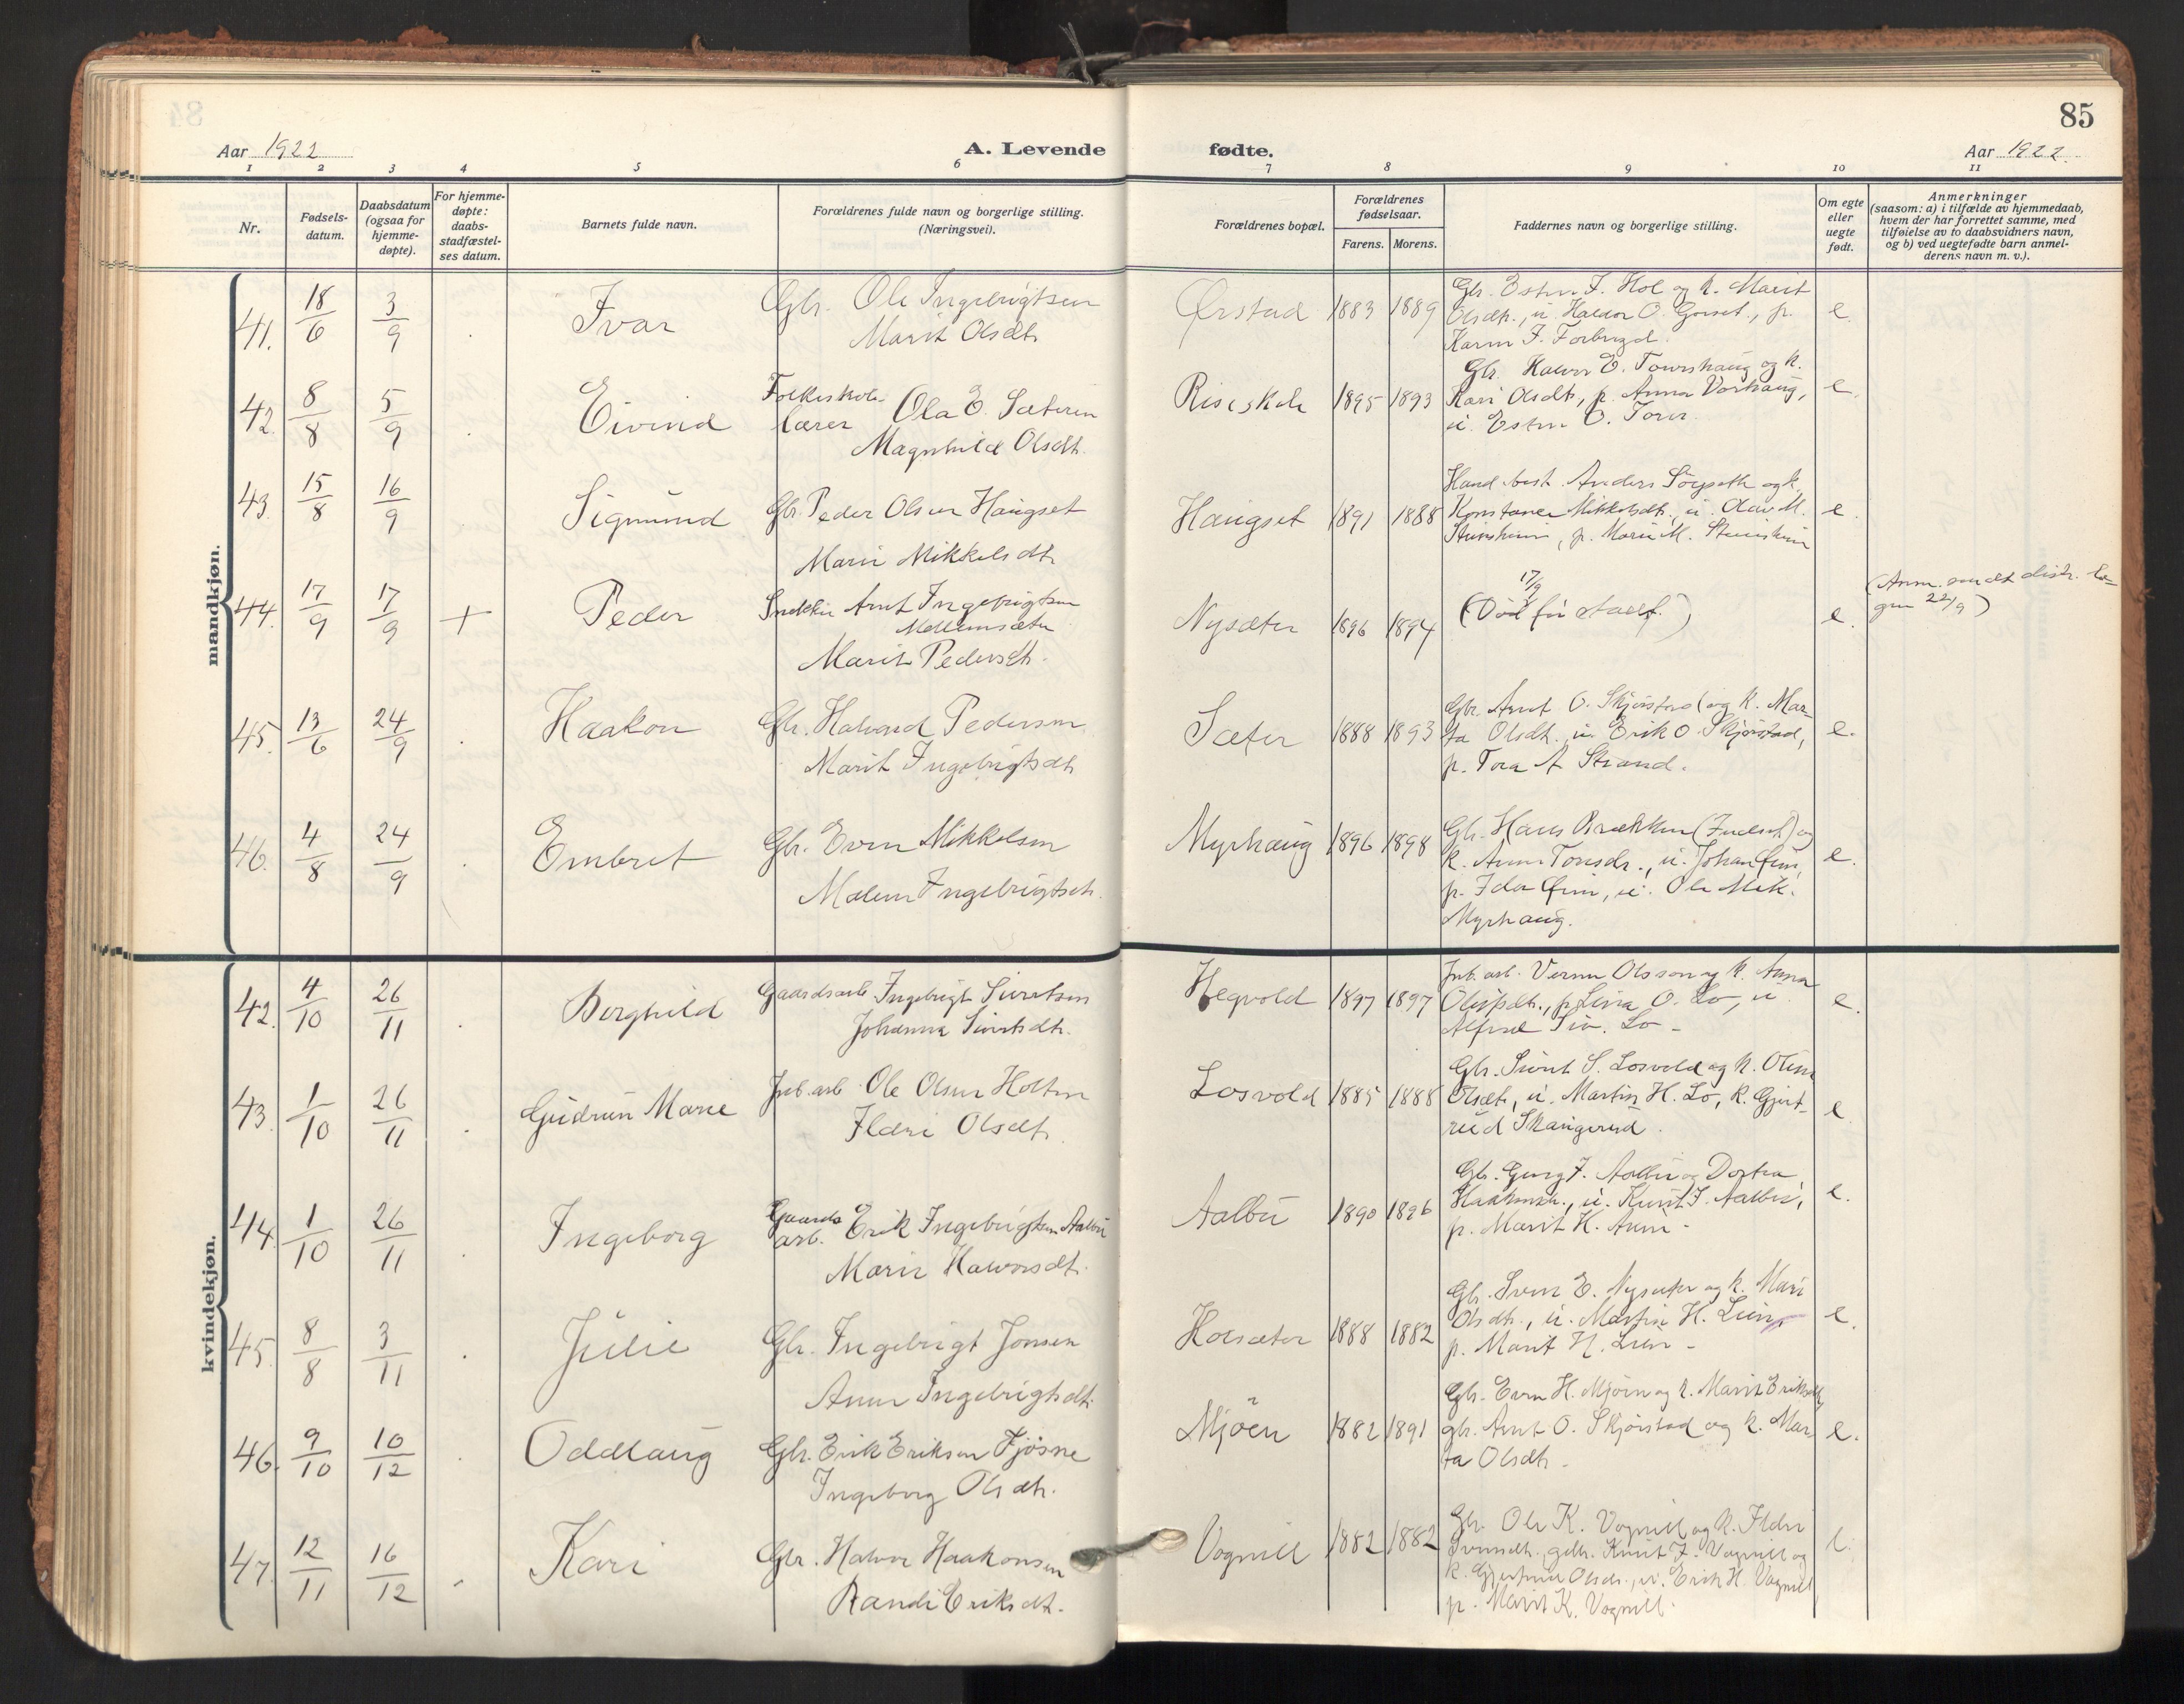 85
Aar 1922
A. Levende
fødte.
Aar 1922.
1 2 3 4 5 6 7 8 9 10 11
Nr.
Fødsels-
datum.
Daabsdatum
(ogsaa for
hjemme-
døpte).
For hjemme-
døpte:
daabs-
stadfæstel-
ses datum.
Barnets fulde navn.
Forældrenes fulde navn og borgerlige stilling.
(Næringsvei).
Forældrenes bopæl.
Forældrenes
fødselsaar.
Farens. Morens.
Faddernes navn og borgerlige stilling.
Om egte
eller
uegte
født.
Anmerkninger
(saasom: a) i tilfælde av hjemmedaab,
hvem der har forrettet samme, med
tilføielse av to daabsvidners navn,
og b) ved uegtefødte barn anmel-
derens navn m. v.).
mandkjøn.
41. 18/6 3/9 . Ivar
Gbr. Ole Ingebrigtsen
Marit Olsdtr.
Ørstad 1883 1889
Gbr. Esten I. Hol og k. Marit
Olsdtr., u. Haldor O. Gorset, p.
Karen I. Forbregd.
e.
42. 8/8 5/9 . Eivind
Folkeskole-
lærer Ola E. Sæteren
Magnhild Olsdtr.
Riseskole 1895 1893
Gbr. Halvor E. Toureshaug og k.
Kari Olsdtr., p. Anna Vorhaug,
u. Esten O.
e.
43. 15/8 16/9 Sigmund
Gbr. Peder Olsen Haugset
Marie Mikkelsdtr.
Haugset 1891 1888
Hand.best. Anders og k.
Konstance Mikkelsdtr., u. Olav M.
Steinsheim, p. Marie M. Steinsheim
e.
44. 17/9 17/9 + Peder
Snekker Arnt Ingebrigtsen
Mellemsæter
Marit Pedersdtr.
Nysæter 1896 1894
17/9
(Død før stadf.)
e.
(Anm. sendt distr. læ-
gen 22/9)
45. 13/6 24/9 . Haakon
Gbr. Halvard Pedersen
Marit Ingebrigtsdtr.
Sæter 1888 1893
Gbr. Arnt O. Skjørstad og k. Mar-
ta Olsdtr., u. Erik O. Skjørstad,
p. Tora A. Strand.
e.
46. 4/8 24/9 . Embret
Gbr. Even Mikkelsen
Malene Ingebrigtsdtr.
Myrhaug 1896 1898
Gbr. Hans Brækken (Indset) og
k. Anne Tonsdr., u. Johan
p. Ida , u. Ole Mik.
Myrhaug.
e.
kvindekjøn.
42. 4/10 26/11 . Borghild
Gaardsarb. Ingebrigt Sivertsen
Johanna Sivertsdtr.
Hegvold 1897 1897
Jnb.arb. Verner Olsson og k. Anna
Olufsdtr., p. Lina O. Lo, u.
Alfred Siv. Lo -
e.
43. 1/10 26/11 . Gudrun Marie
Jnb.arb. Ole Olsen Holten
Ildri Olsdtr.
Losvold 1885 1888
Gbr. Sivert S. Losvold og k. Oline
Olsdtr., u. Martin H. Lo, k. Gjert-
rud Skangerud.
e.
44. 1/10 26/11 . Ingeborg
Gaards
arb. Erik Ingebrigtsen Aalbu
Marie Halvorsdtr.
Aalbu 1890 1896
Gbr. I. Aalbu og Dortea
Haakensdtr., u. Knut I. Aalbu,
p. Marit H. Aune -
e.
45. 8/8 3/11 . Julie
Gbr. Ingebrigt Jonsen
Anne Ingebrigtsdtr.
Holsæter 1888 1882
Gbr. Sven E. Nysæter og k. Mari
Olsdtr., u. Martin H. Lien,
p. Marit H. Lien -
e.
46. 9/10 10/12 . Oddlaug
Gbr. Erik Eriksen Fjøsne
Ingeborg Olsdtr.
Mjøen 1882 1891
Gbr. Even H. Mjøen og k. Marit Eriksdtr.,
gbr. Arnt O. Skjørstad og k. Mar-
ta Olsdtr. -
e.
47. 12/11 16/12 . Kari
Gbr. Halvor Haakonsen
Randi Eriksdtr.
Vognill 1882 1882
Gbr. Ole K. Vognill og k. Ildri
Svensdtr., gbr. Knut I. Vognill og
k. Gjertrud Olsdr., u. Erik H. Vognill,
p. Marit K. Vognill.
e.